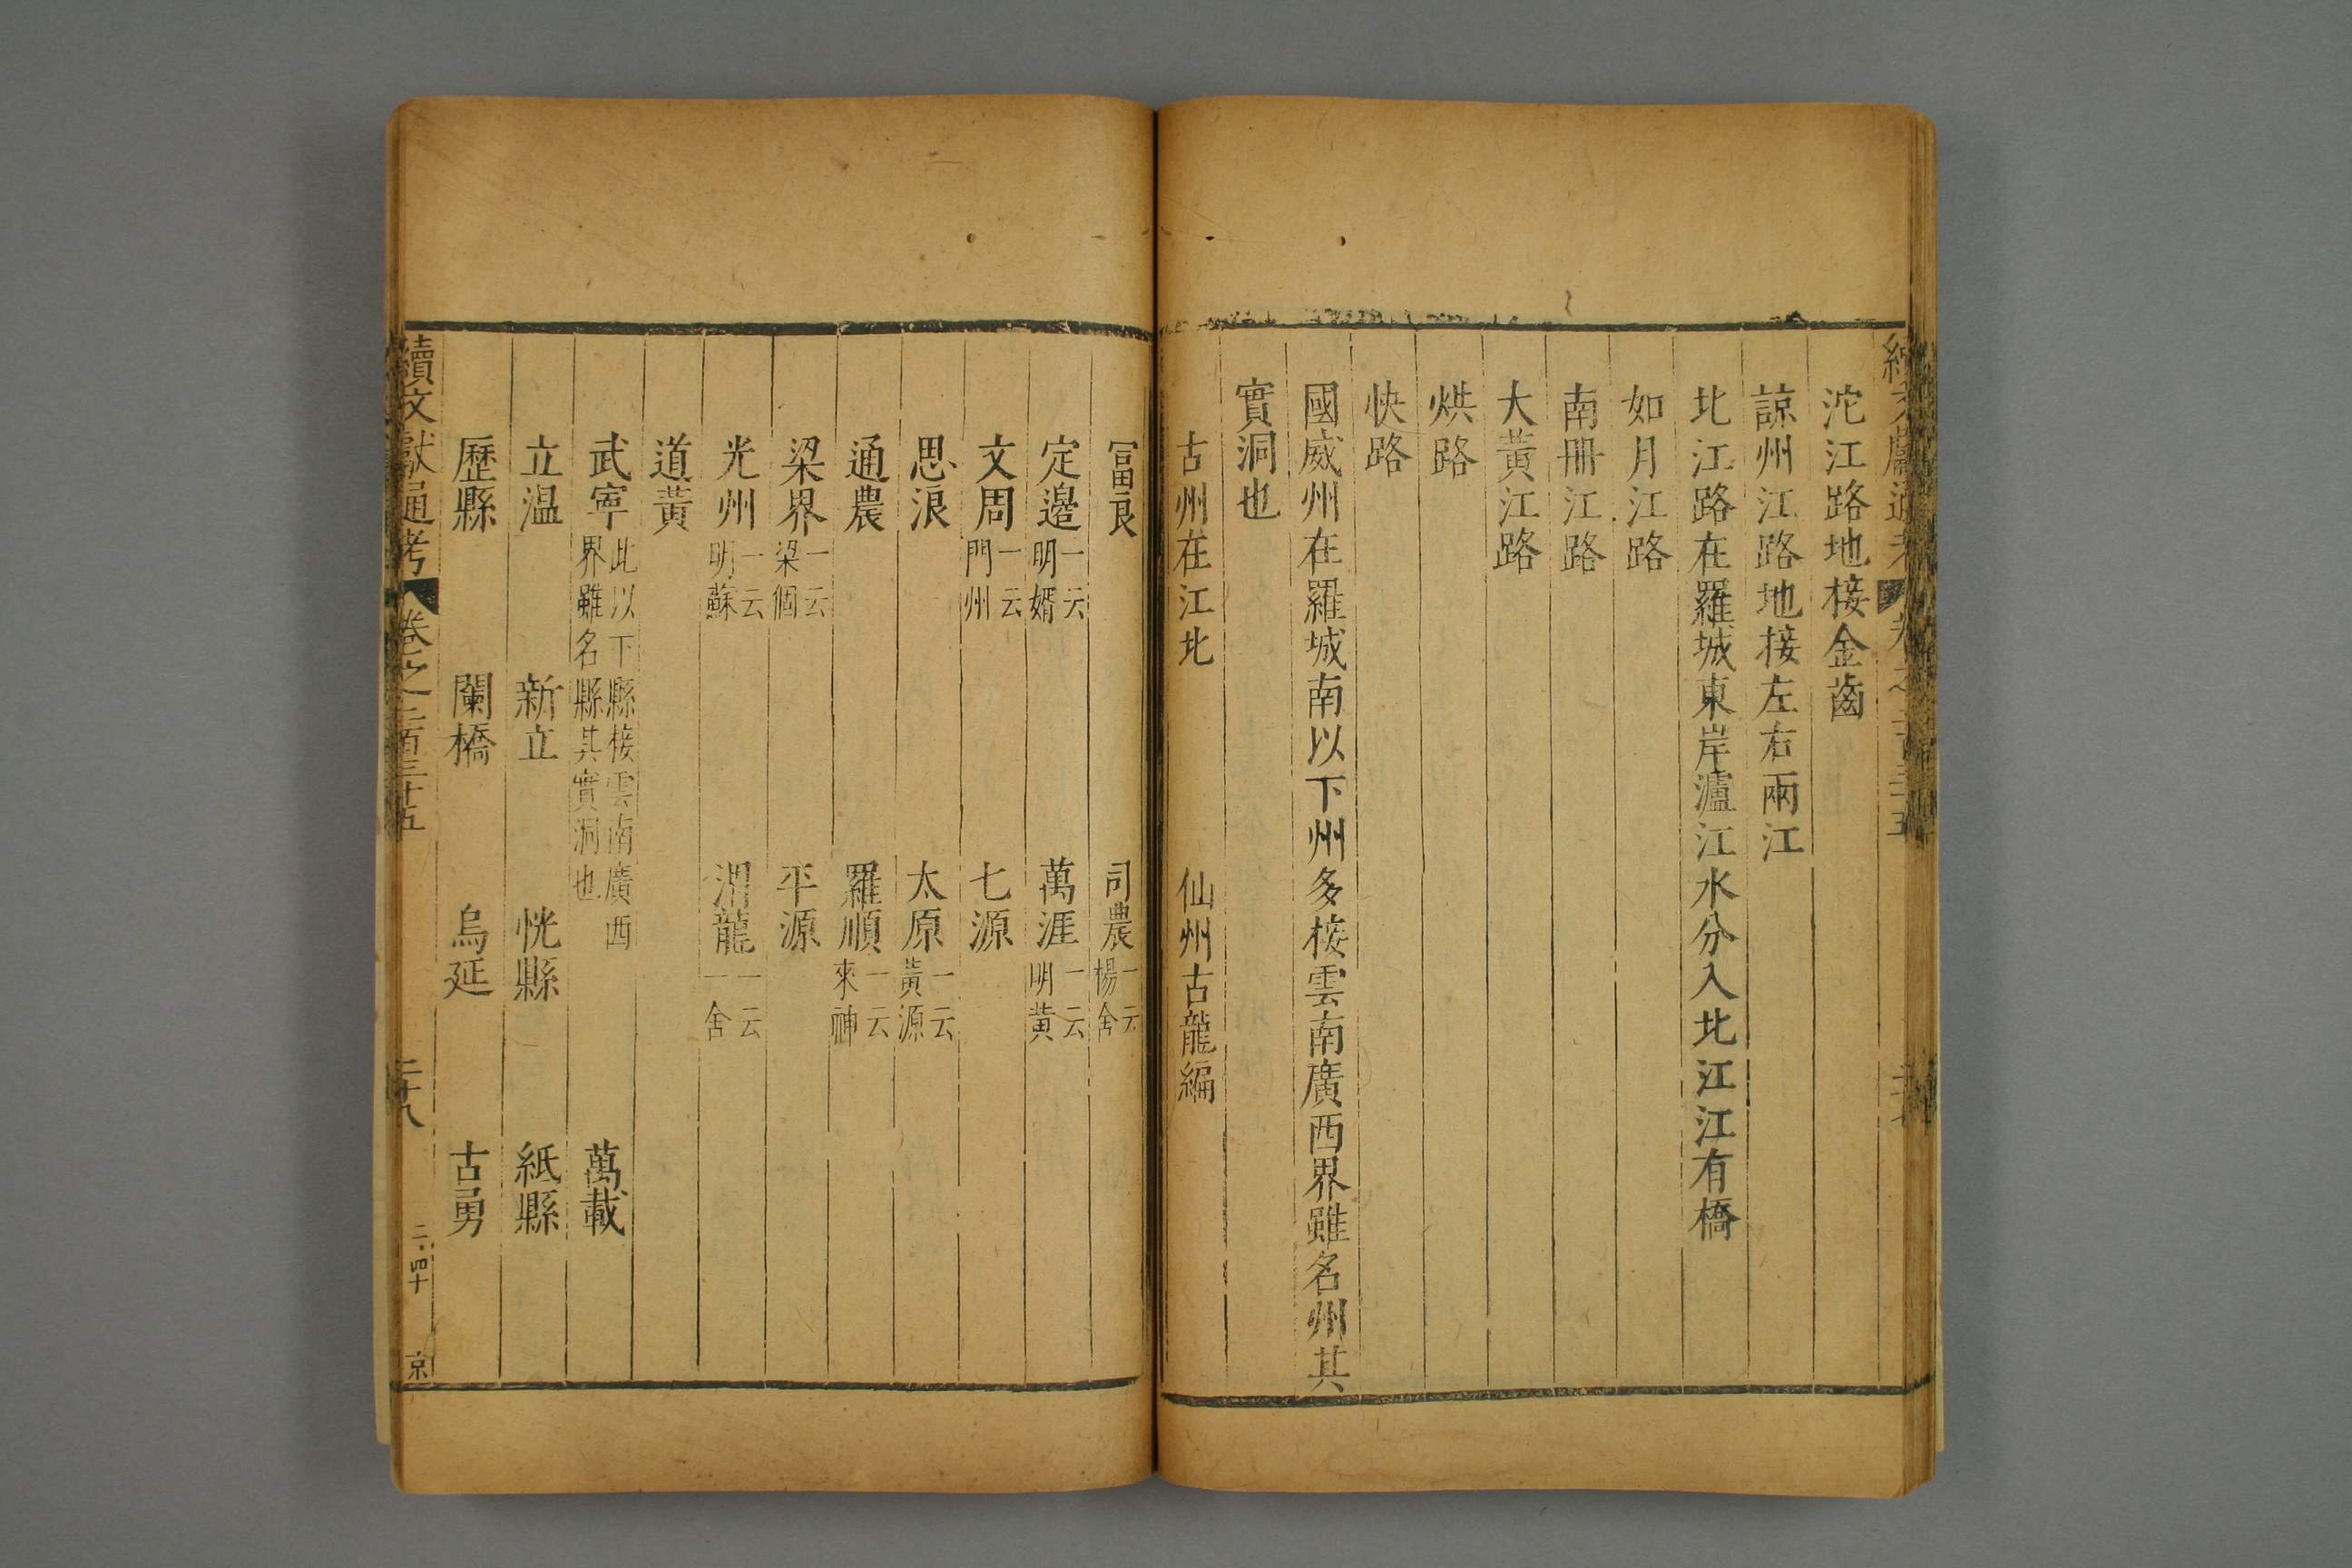 沱江路地接金齒
諒州江路地接左右兩江
北江路在羅城東岸瀘江水分入北江江有橋
如月江路
南冊江路
大黃江路
烘路
快路
國威州在羅城南以下州多接雲南廣西界雖名州其
實洞也
古州在江北 仙州古龍編
冨良 司農一云楊舍
定邉一云明媠 萬涯一云明黃
文周一云門州 七源
思浪 太原一云黃源
通農 羅順一云來神
梁界一云梁個 平源
光州一云明蘇 渭龍一云一舍
道黃
武寧此以下縣接雲南廣西界雖名縣其實洞也 萬載
立温 新立 恍縣 紙縣
歷縣 闌橋 烏延 古勇
續文獻通考 卷之二百三十五 二十八 二・四十 京